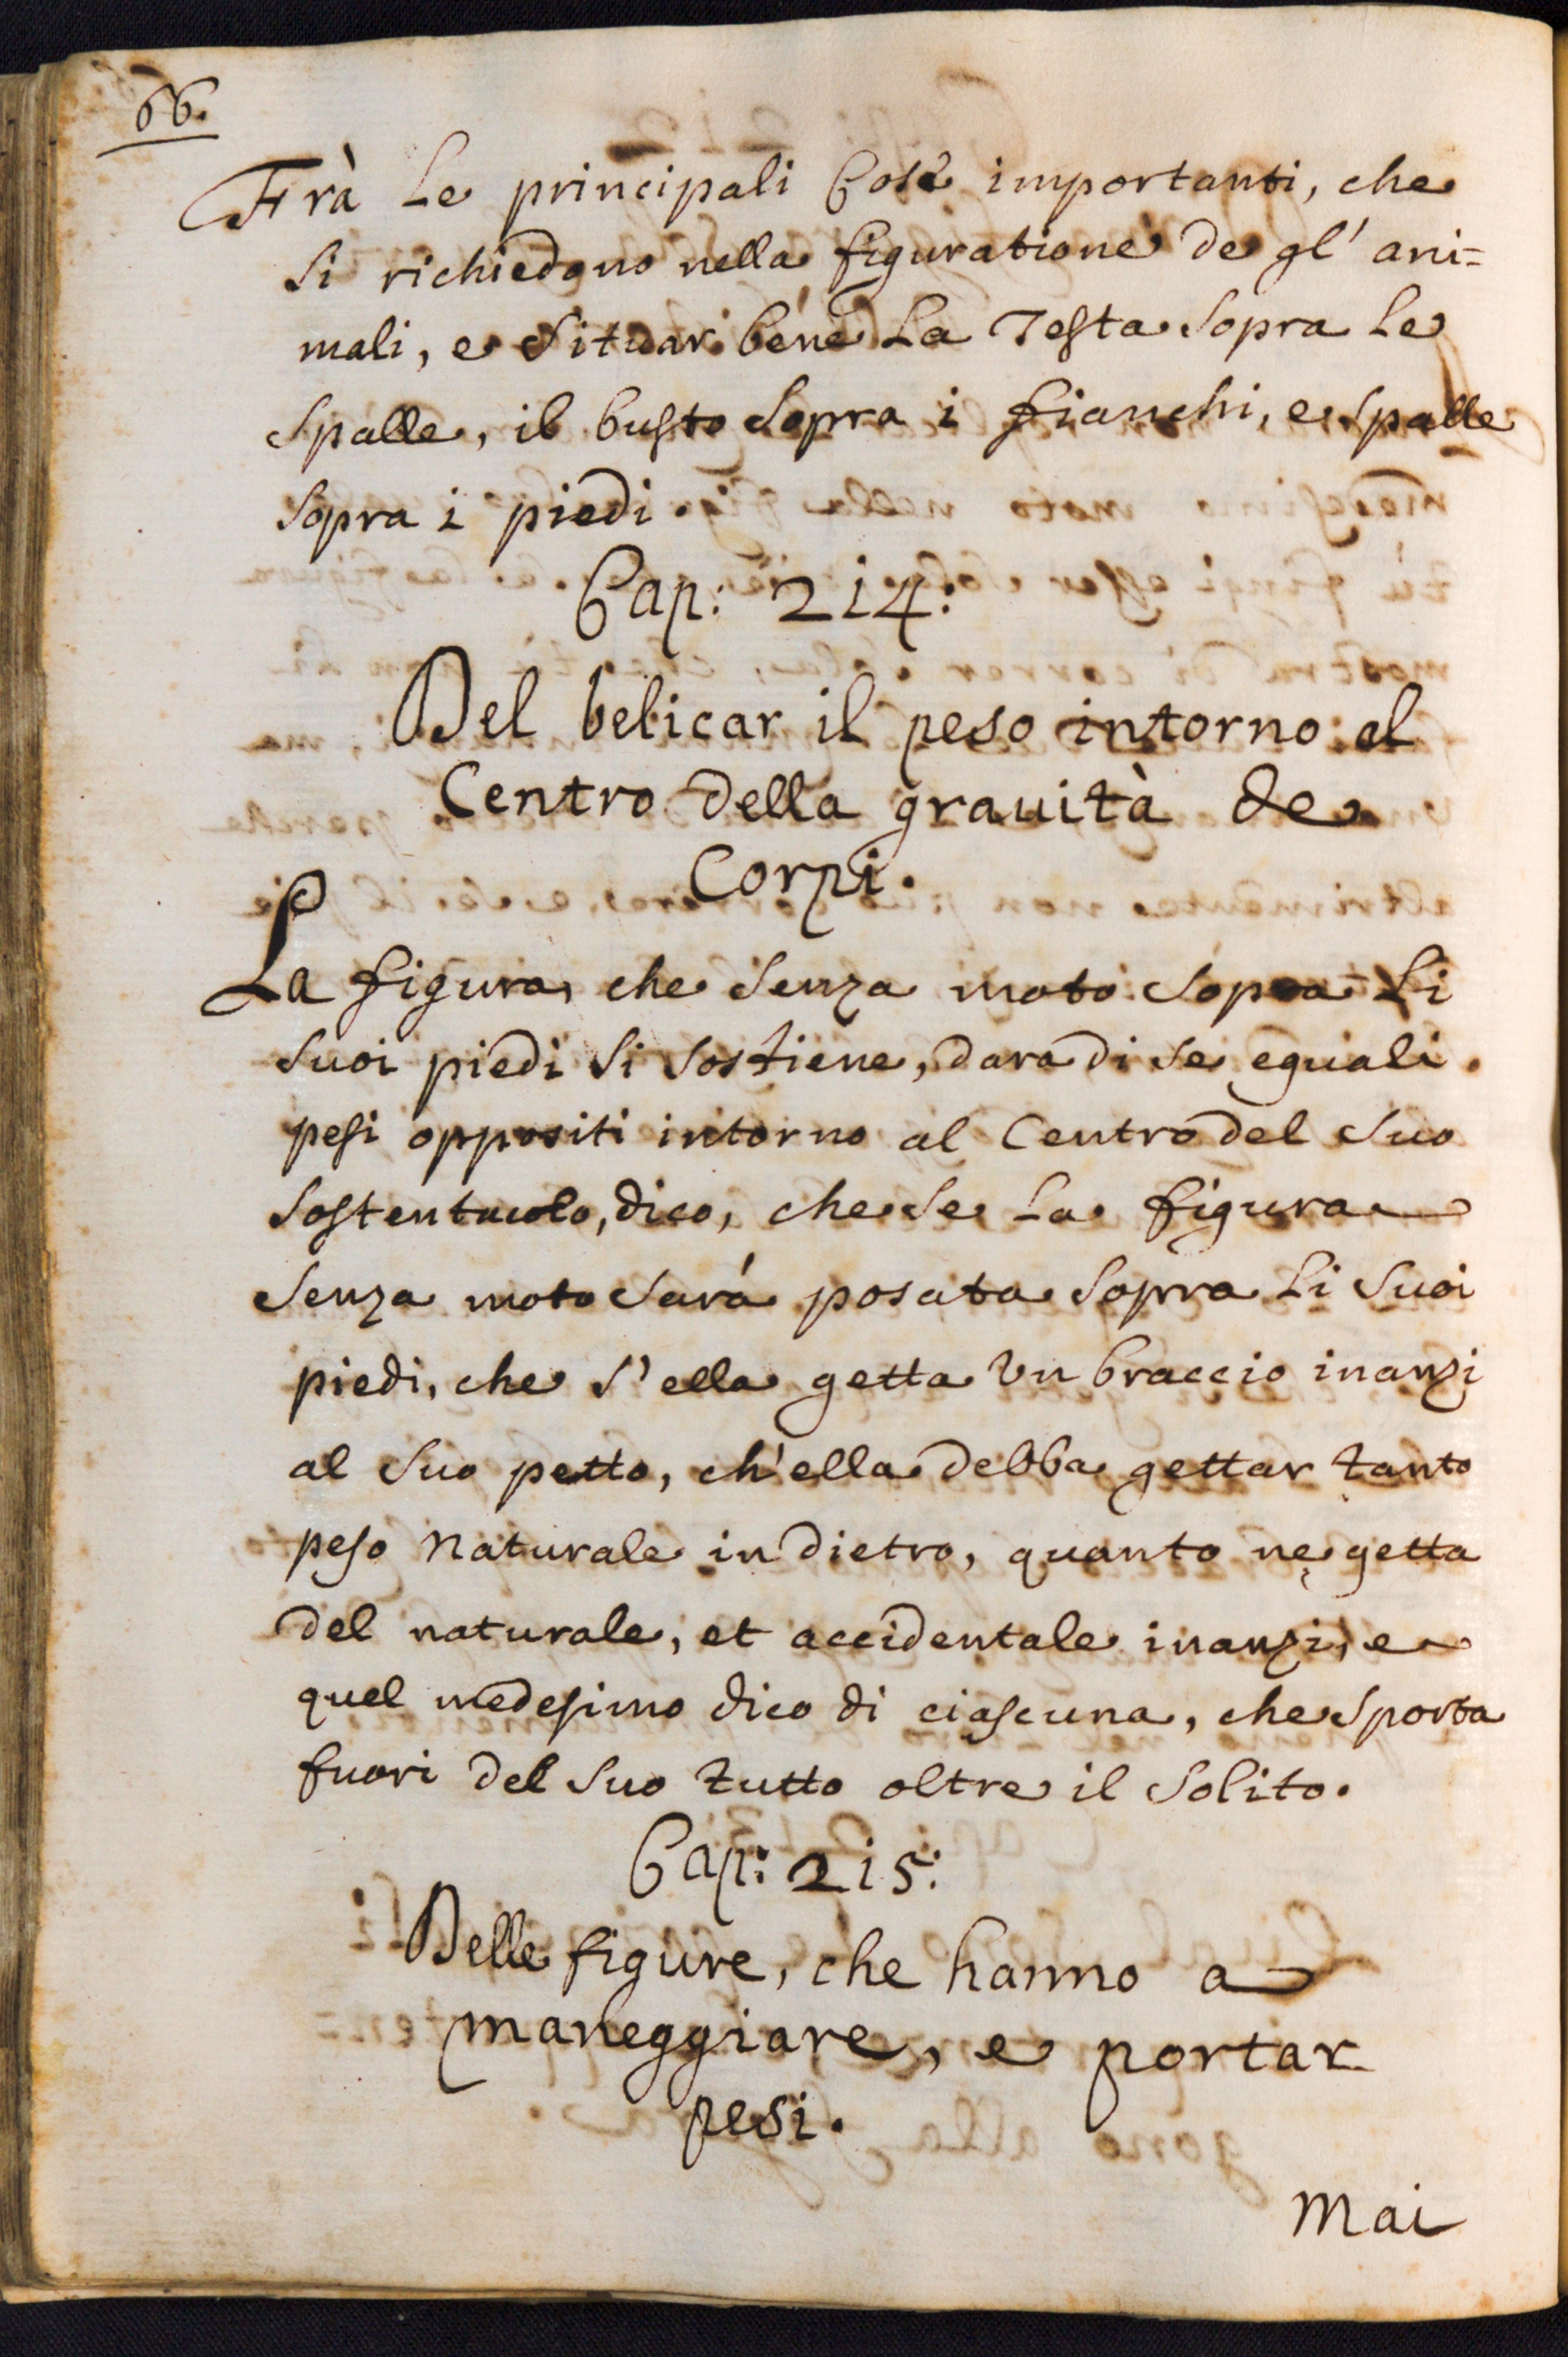 66.
Frà Le principali Cose importanti, che
si richiedono nella figuratione de gl' ani=
mali, e situar bene La Testa sopra Le
spalle, il busto sopra i fianchi, e spalle
sopra i piedi.
Cap: 214:
Del belicar il peso intorno al
Centro della grauità de
Corpi.
La figura, che senza moto sopra Li
suoi piedi si sostiene, dara di se eguali
pesi oppositi intorno al Centro del suo
sostentacolo, dico, che se La figura
senza moto sarà posata sopra Li suoi
piedi, che s'ella getta Vn braccio inanzi
al suo petto, ch'ella debba gettar tanto
peso naturale in dietro, quanto ne getta
del naturale, et accidentale inanzi, e
quel medesimo dico di ciascuna, che sporta
fuori del suo tutto oltre il solito.
Cap: 215:
Delle figure, che hanno a
maneggiare, e portar
pesi.
Mai